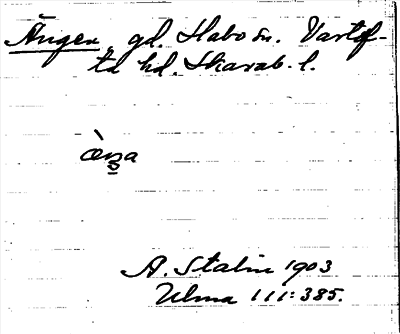 Ängen, gd. Habo sn. Vartof-
ta hd. Skarab. l.
A. Stalin 1903
Ulma 111:385.